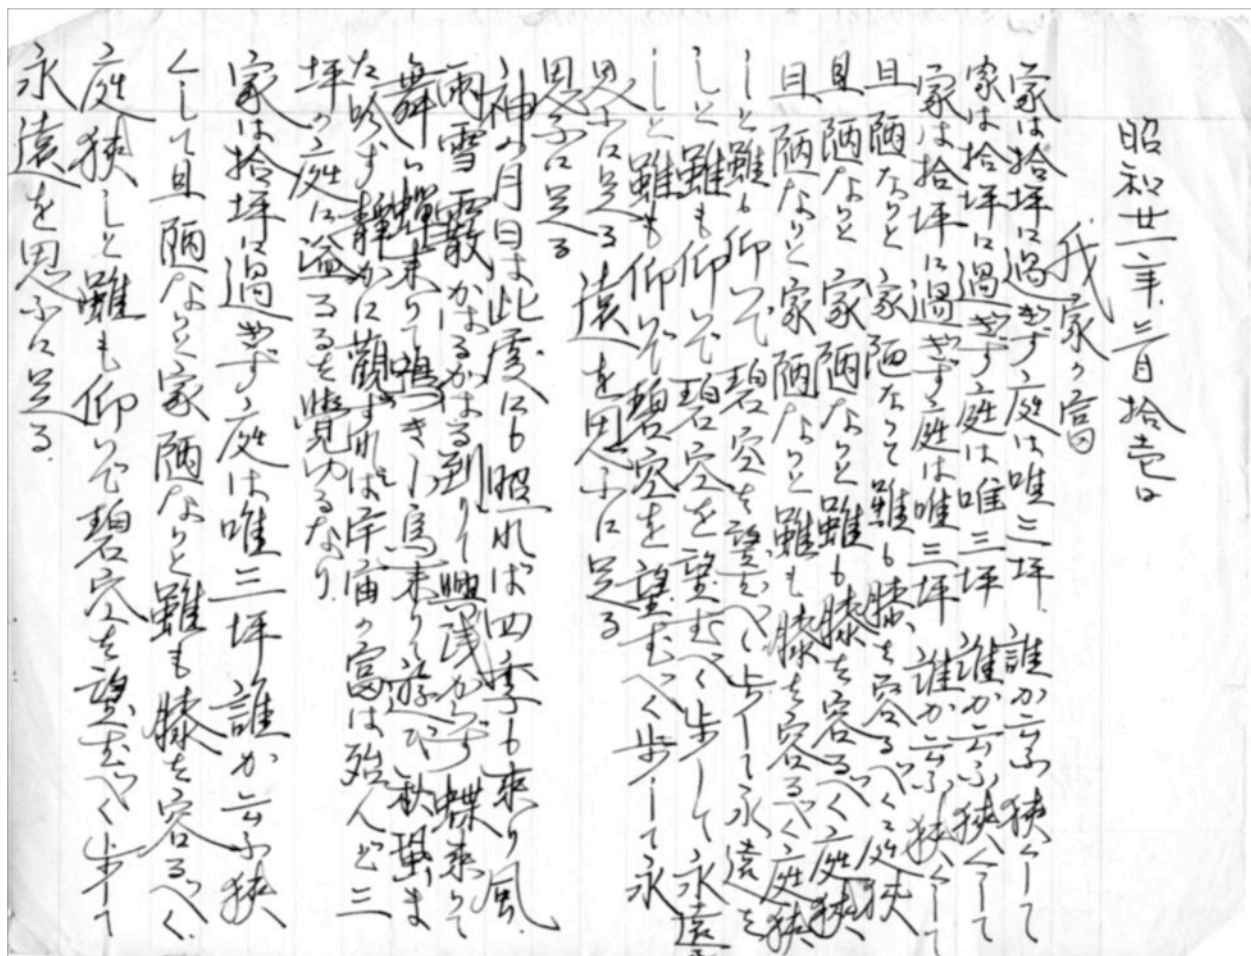 昭和廿一年二月拾壱日
我家の富
家は拾坪に過ぎず庭は唯三坪 誰か云ふ狭くして
家は拾坪に過ぎず庭は唯三坪 誰か云ふ狭くして
家は拾坪に過ぎず庭は唯三坪 誰か云ふ狭くして
且陋なりと 家陋なりと雖も膝を容るべく庭狭
且陋なりと 家陋なりと雖も膝を容るべく庭狭
且陋なりと家陋なりと雖も膝を容るべく庭狭
しと雖も仰いで碧空を望むべく歩して永遠を
しと雖も仰いで碧空を望むべく歩して永遠を
しと雖も仰いで碧空を望むべく歩して永
思ふに足る 遠を思ふに足る
思ふに足る
神の月日は此處にも照れば四季も来り風
雨雪霰かはるがはる到りて興浅からず蝶来りて
舞ひ蝉来りて鳴き小鳥来りて遊び秋蛩ま
た吟ず静かに觀ずれば宇宙の富は殆んど三
坪の庭に溢るるを覚ゆるなり
家は拾坪に過ぎず庭は唯三坪誰か云ふ狭
くして且陋なりと家陋なりと雖も膝を容るべく
庭狭しと雖も仰いで碧空を望むべく歩して
永遠を思ふに足る.